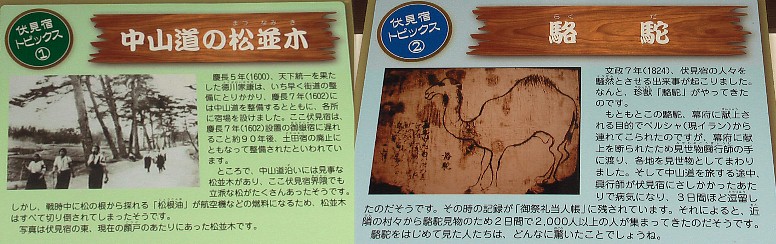 伏見宿
トピックス
①
まつなみき
中山道の松並木
慶長5年(1600)、天下統一を果たし
た徳川家康は、いち早く街道の整
備にとりかかり、慶長7年(1602)に
は中山道を整備するとともに、各所
に宿場を設けました。ここ伏見宿は、
慶長7年(1602)設置の御嶽宿に遅れ
ること約90年後、土田宿の廃止に
ともなって整備されたといわれてい
ます。
ところで、中山道沿いには見事な
松並木があり、ここ伏見宿界隈でも
立派な松がたくさんあったそうです。
しかし、戦時中に松の根から採れる「松根油」が航空機などの燃料になるため、松並木
はすべて切り倒されてしまったそうです。
写真は伏見宿の東、現在の顔戸のあたりにあった松並木です。
伏見宿
トピックス
②
らくだ
駱駝
文政7年(1824)、伏見宿の人々を
騒然とさせる出来事が起こりました。
なんと、珍獣「駱駝」がやってきた
のです。
もともとこの駱駝、幕府に献上さ
れる目的でペルシャ(現イラン)から
連れてこられたのですが、幕府に献
上を断られたため見世物興行師の手
に渡り、各地を見世物としてまわり
ました。そして中山道を旅する途中、
興行師が伏見宿にさしかかったあた
りで病気になり、3日間ほど逗留し
たのだそうです。その時の記録が「御祭礼当人帳」に残されています。それによると、近
隣の村々から駱駝見物のため2日間で2,000人以上の人が集まってきたのだそうです。
駱駝をはじめて見た人たちは、どんなに驚いたことでしょうね。